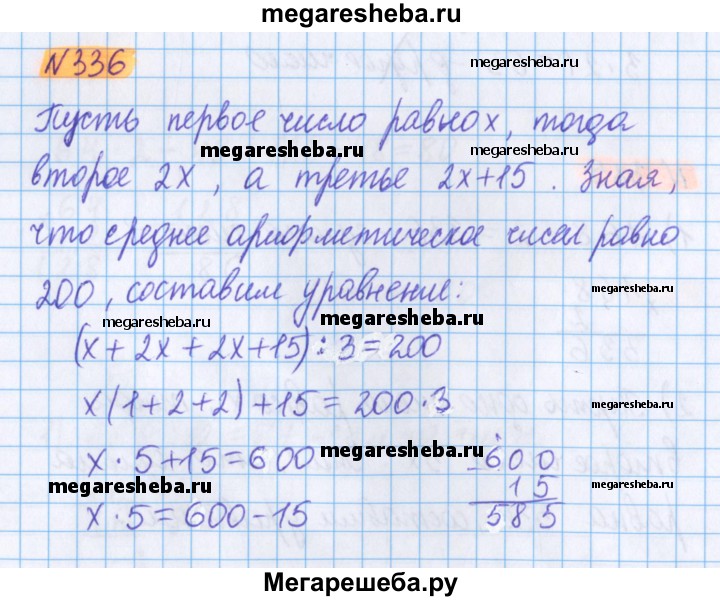 megaresheba.ru
N336
megaresheba.ru
Пусть первое число равно x, тогда
megaresheba.ru
megaresheba.ru
второе 2x, а третье 2x+15. Зная,
что среднее арифметическое чисел равно
200, составим уравнение:
megaresheba.ru
megaresheba.ru
megaresheba.ru
(x + 2x + 2x+15) : 3 = 200
x(1+2+2)+15=200·3
megaresheba.ru
x·5+15=600
megaresheba.ru
600
megaresheba.ru
15
megaresheba.ru
x·5=600-15
585
Мегарешеба.ру